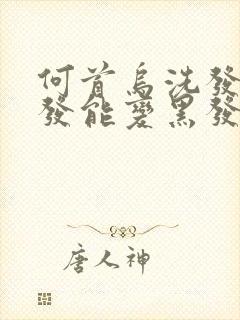 何首烏洗發
發能變黑發
唐人神